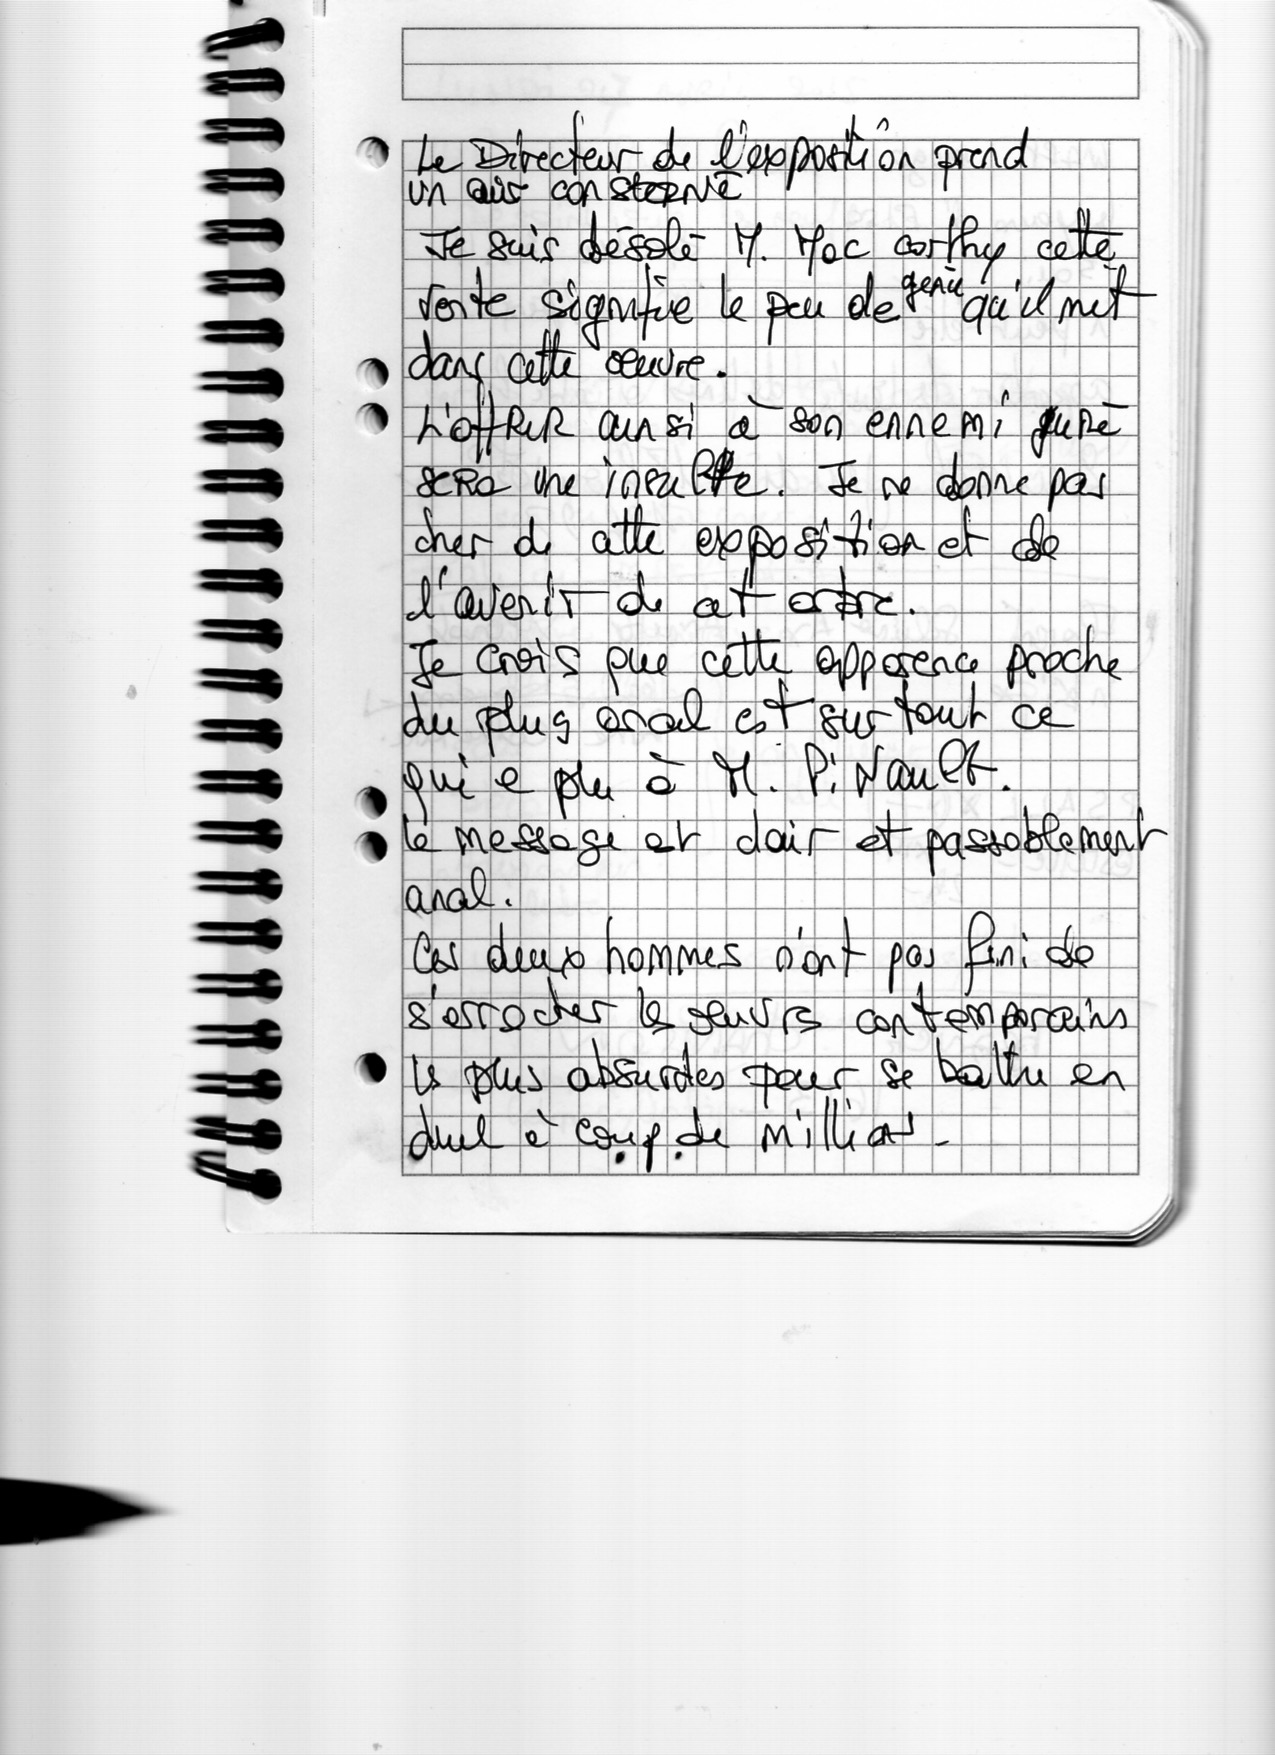 Le Directeur de l'exposition prend
un air consterné
Je suis désolé M. Mac carthy cette
vente signifie le peu de génie qu'il met
dans cette œuvre.
L'offRIR ainsi à son ennemi juré
sera une insulte. Je ne donne pas
cher de cette exposition et de
l'avenir de cet arbre.
Je crois que cette apparence proche
du plug anal est surtout ce
qui a plu à M. Pinault.
Le message est clair et passablement
anal.
Ces deux hommes n'ont pas fini de
s'arracher les œuvres contemporains
les plus absurdes pour se battre en
duel à coup de millions.